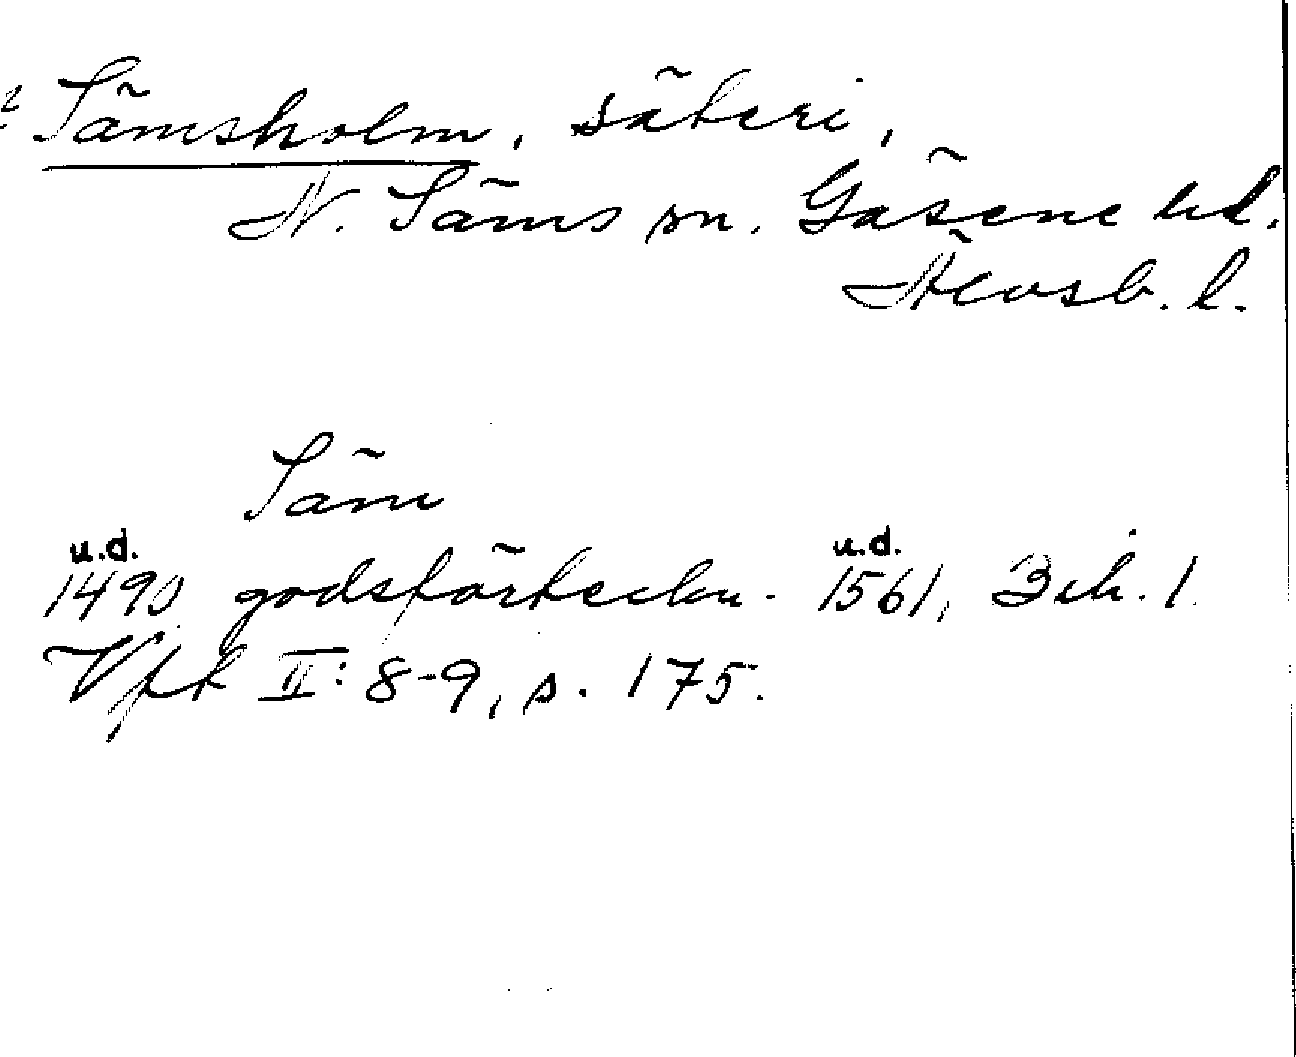 ? Sämsholm, säteri,
N. Säms sn. Gäsene hd.
Älvsb. l.
Säm
u.d. u.d.
1490 godsförteckn. 1561, Bih. 1.
Vfk II: 8-9, s. 175.